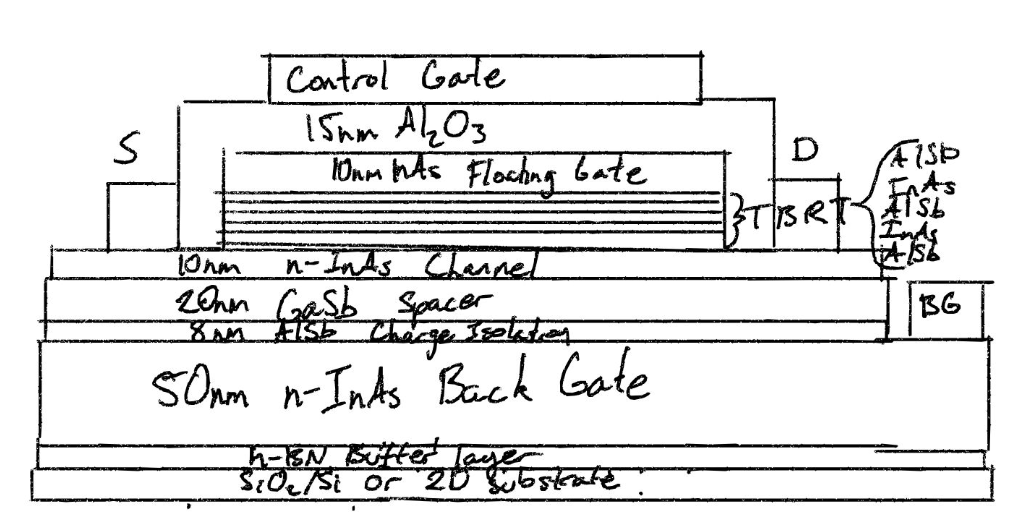 Control Gate
15nm Al2O3
S
D
10nm InAs Floating Gate
TBRT
AlSb
InAs
AlSb
InAs
AlSb
10nm n-InAs Channel
20nm GaSb Spacer
8nm AlSb Charge Isolation
BG
50nm n-InAs Back Gate
h-BN Buffer layer
SiO2/Si or 2D Substrate